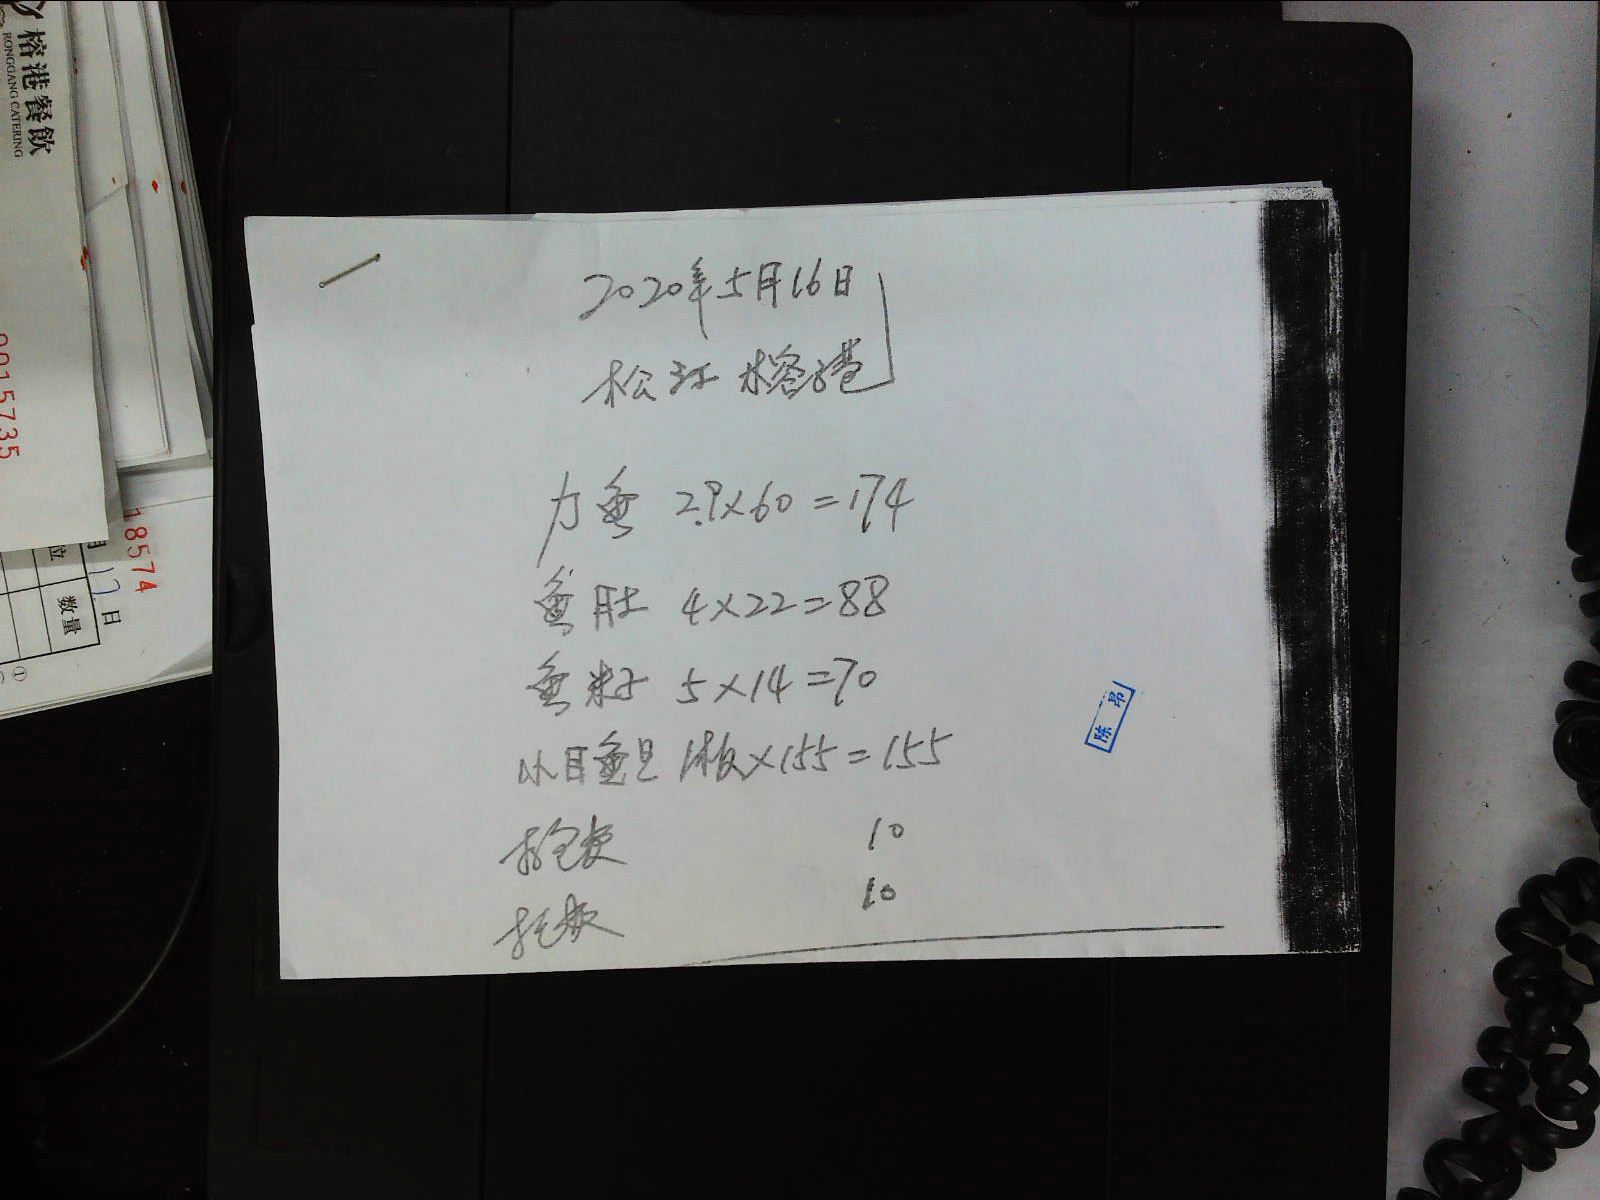 榕港餐飲
RONGGANG CATERING
0015735
18574
月17日
位
数量
①
2020年5月16日
松江 榕港
力鱼 2.9×60=174
鱼肚 4×22=88
鱼籽 5×14=70
小目鱼旦 1板×155=155
打包费 10
托板 10
陈昂